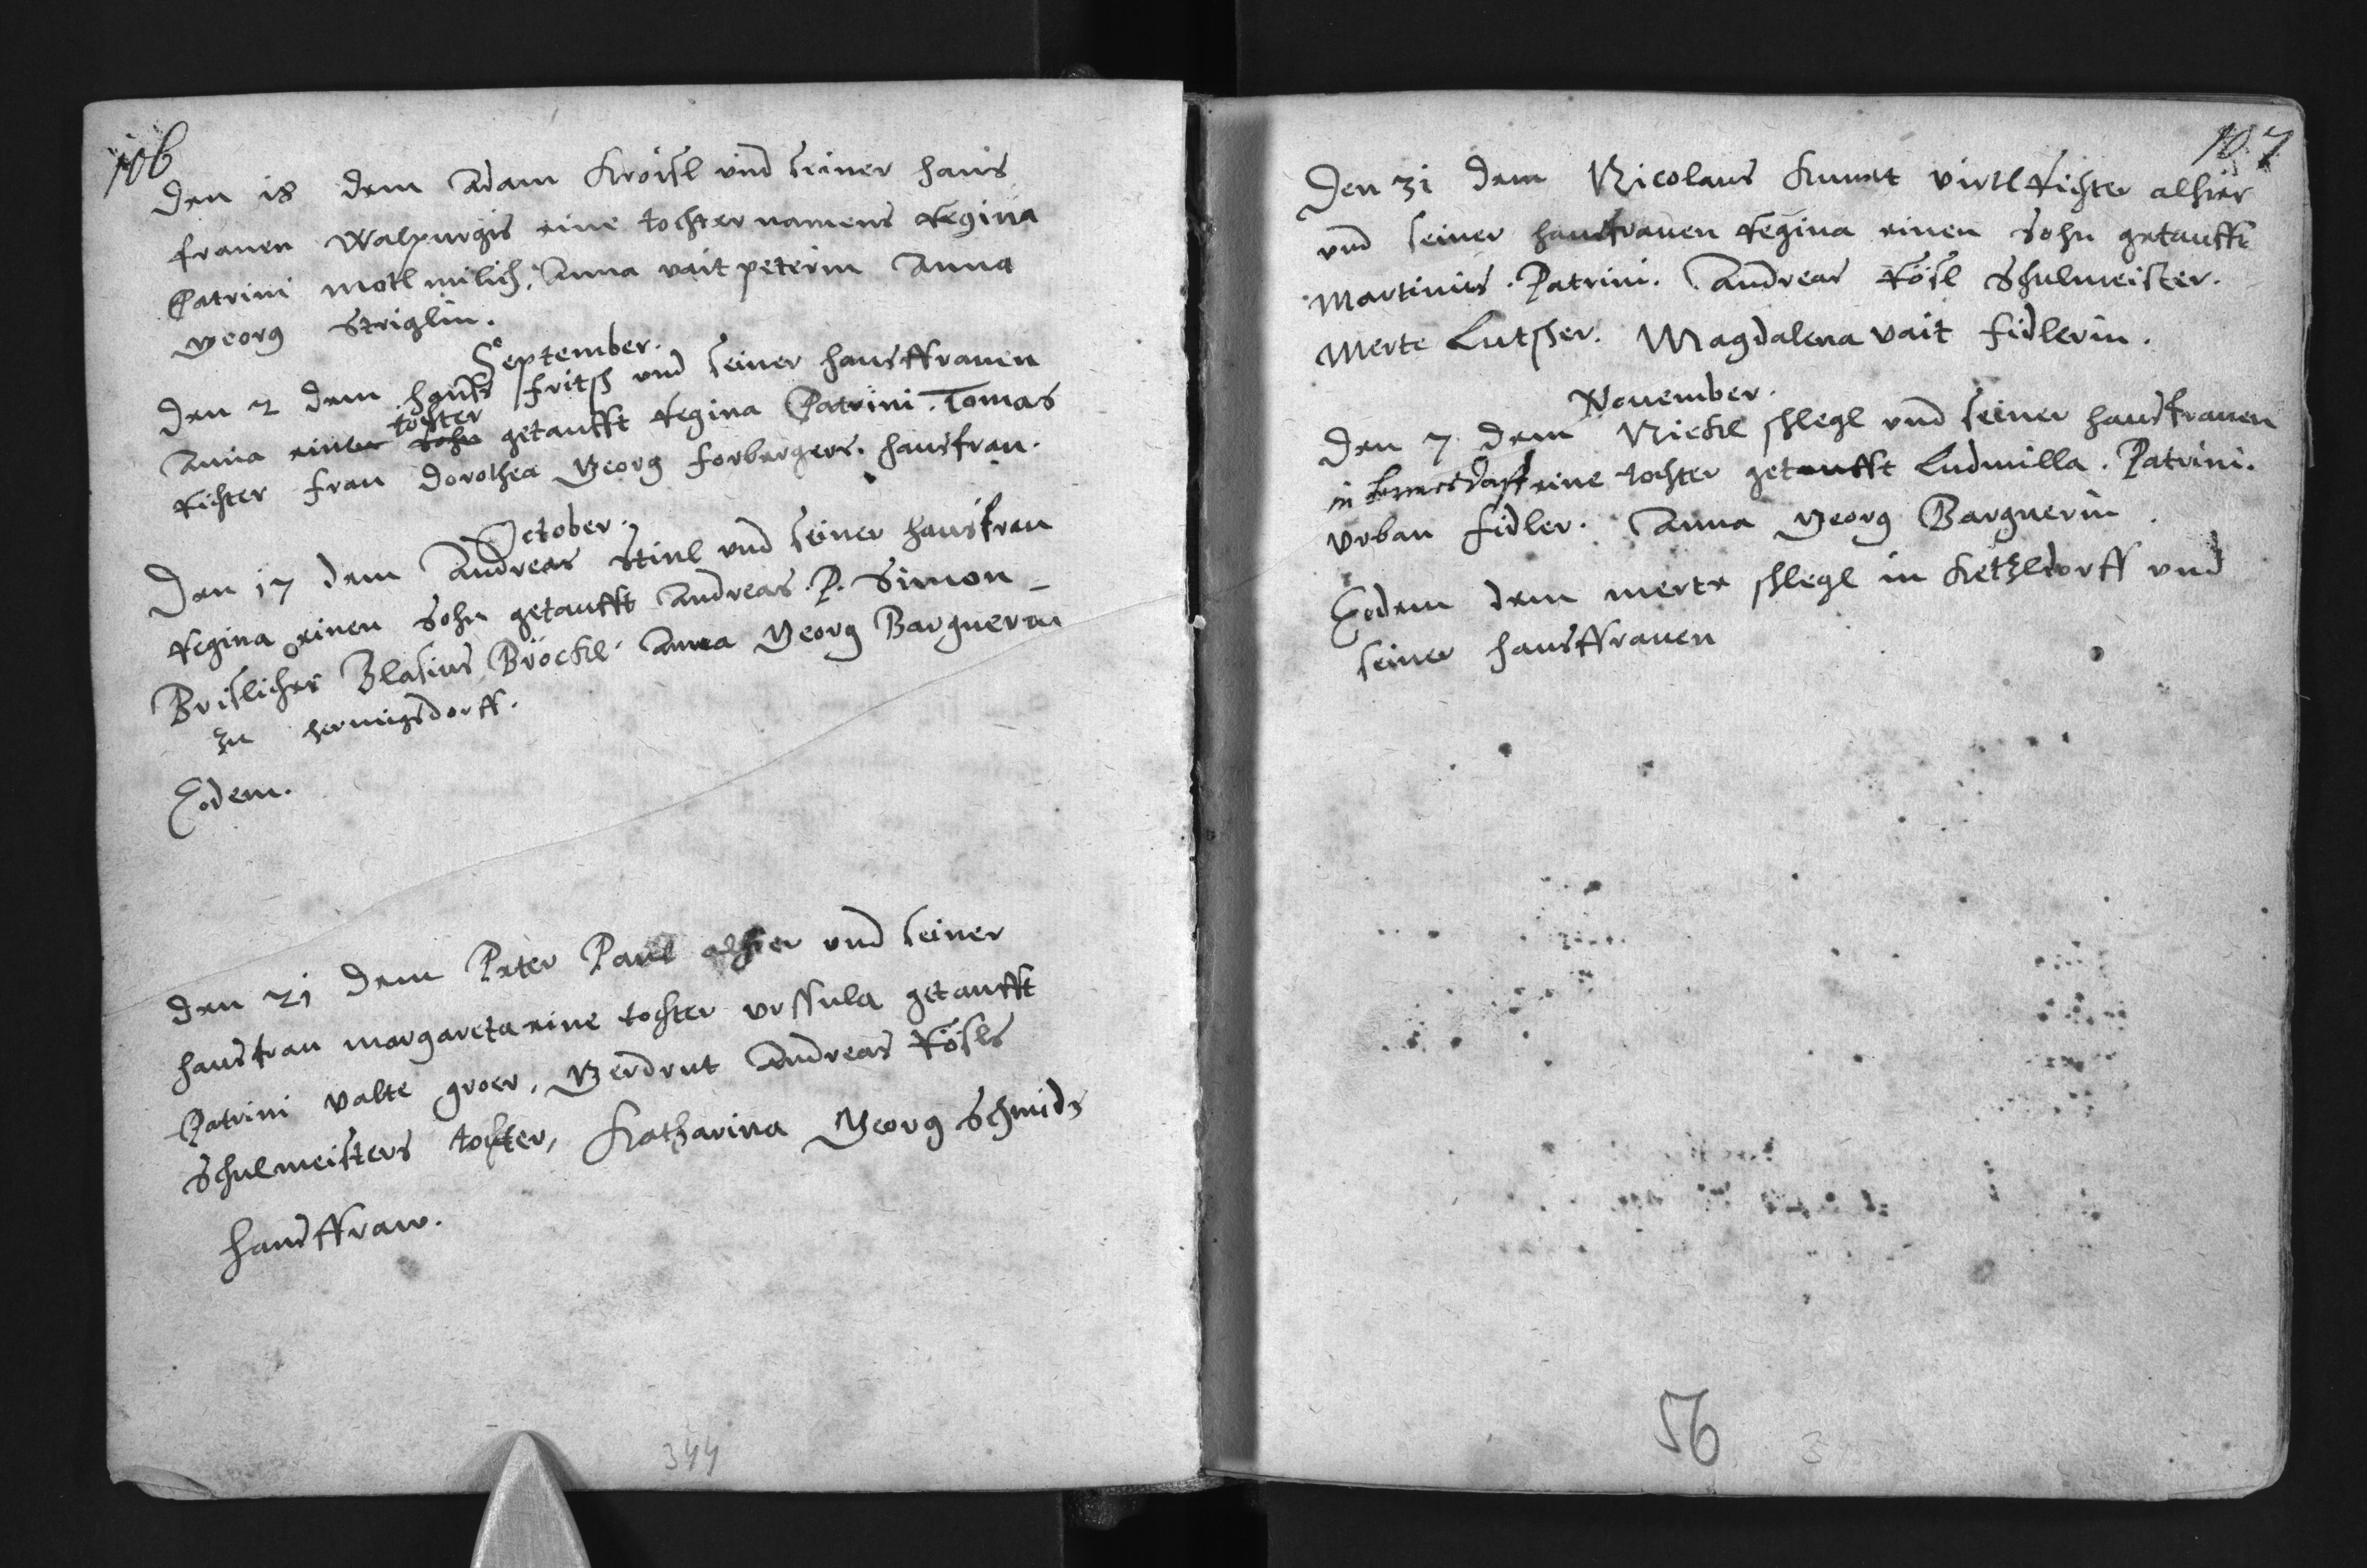 106
Den 18 dem Adam Kroisl und seiner haus
frauen Walpurgis eine tochter namens Regina
Patrini motl milich, Anna vait peterin Anna
Georg Striglin.
September.
Den 2 dem hanss fritsch und seiner hausffrauen
tochter
Anna einen sohn getaufft Regina Patrini. Tomas
Richter frau Dorothea Georg forbergers. hausfrau.
October.
Den 17 dem Andreas Stinl und seiner hausfrau
Regina einen Sohn getaufft Andreas. P. Simon
Brislicher Blasius Bröckl. Anna Georg Bargnerin
zu hermigsdorff.
Eodem.
Den 21 dem Peter Paul alhier und seiner
hausfrau margareta eine tochter vrssula getaufft
Patrini valte groer, Gerdrut Andreas Rösls
Schulmeisters tochter, Katharina Georg Schmids
hausffraw.
344
107
Den 31 dem Nicolaus Kunat virtlRichter alhier
und seiner hausfrauen Regina einen Sohn getaufft
Martinus. Patrini. Andreas Rösl Schulmeister.
Merte Lutscher. Magdalena vait fidlerin.
November.
Den 7 dem Nickl schlegl und seiner hausfrauen
in eine tochter getaufft Ludmilla. Patrini.
Vrban fidler. Anna Georg Bargnerin.
Eodem dem merte schlegl in Ketzlsdorff und
seiner hausffrauen
56